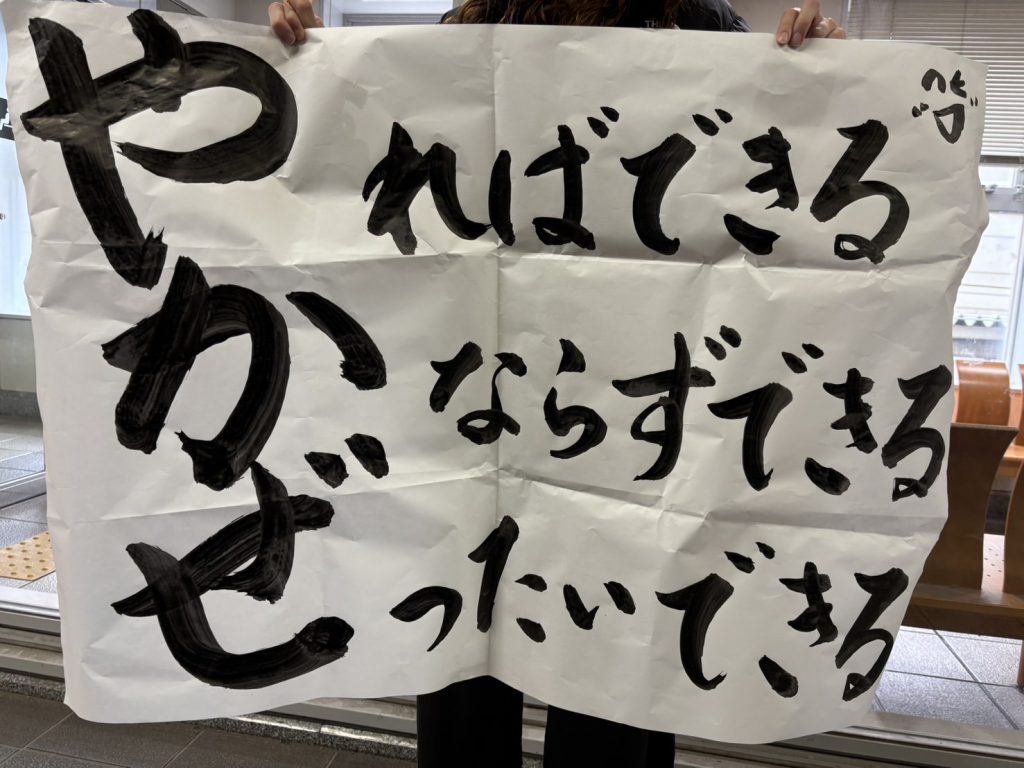 やればできる
かならずできる
ぜったいできる